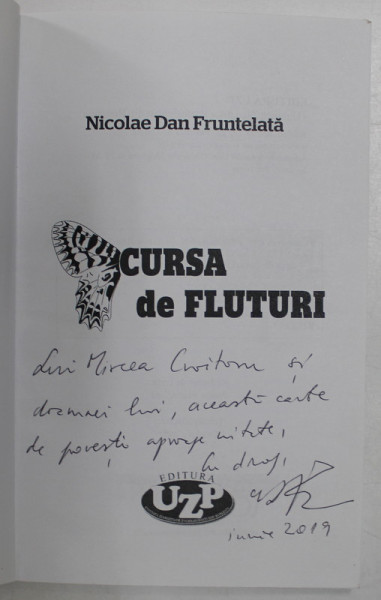 Nicolae Dan Fruntelată
CURSA
de FLUTURI
Lui Mircea Croitoru și
doamnei lui, această carte
de povești aproape uitate,
Cu drag,
EDITURA
UZP
iunie 2019